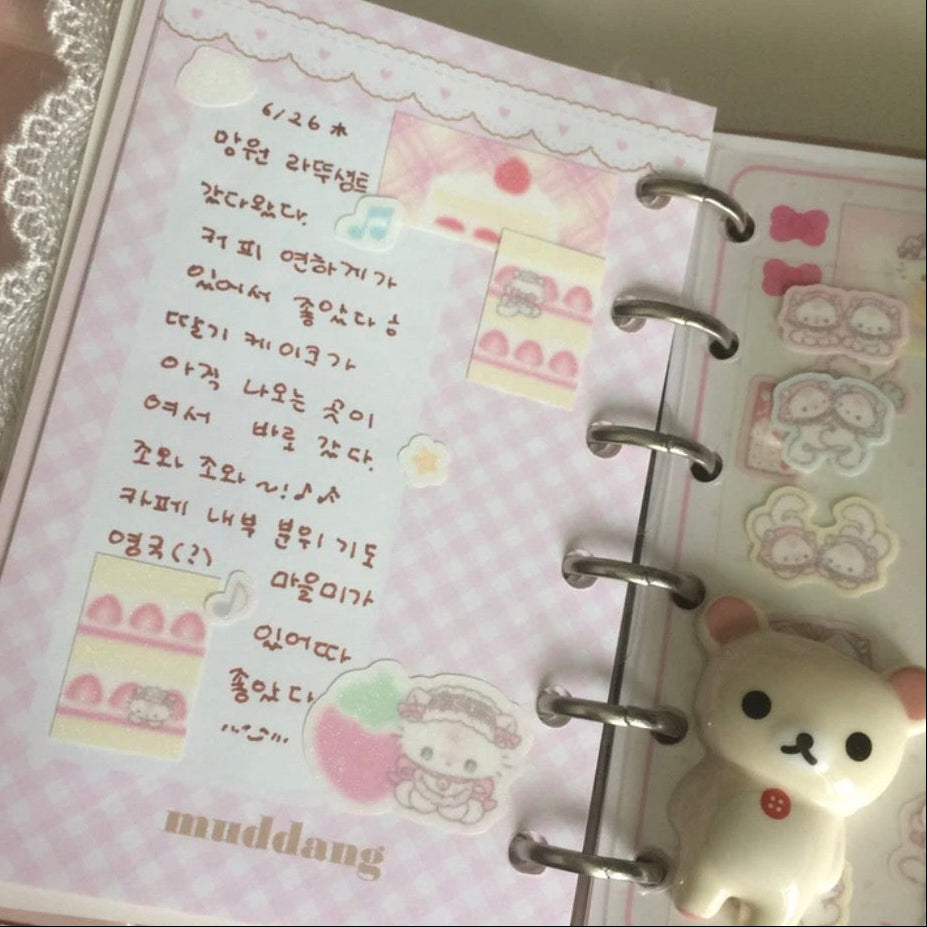 6/26 木
망원 라뚜셩트
갔다왔다.
커피 연하게가
있어서 좋았다 승
딸기 케이크가
아직 나오는 곳이
여서 바로 갔다.
조와 조와 ~!♪♪
카페 내부 분위기도
영국(?)
마을미가
있어따
좋았다
muddang